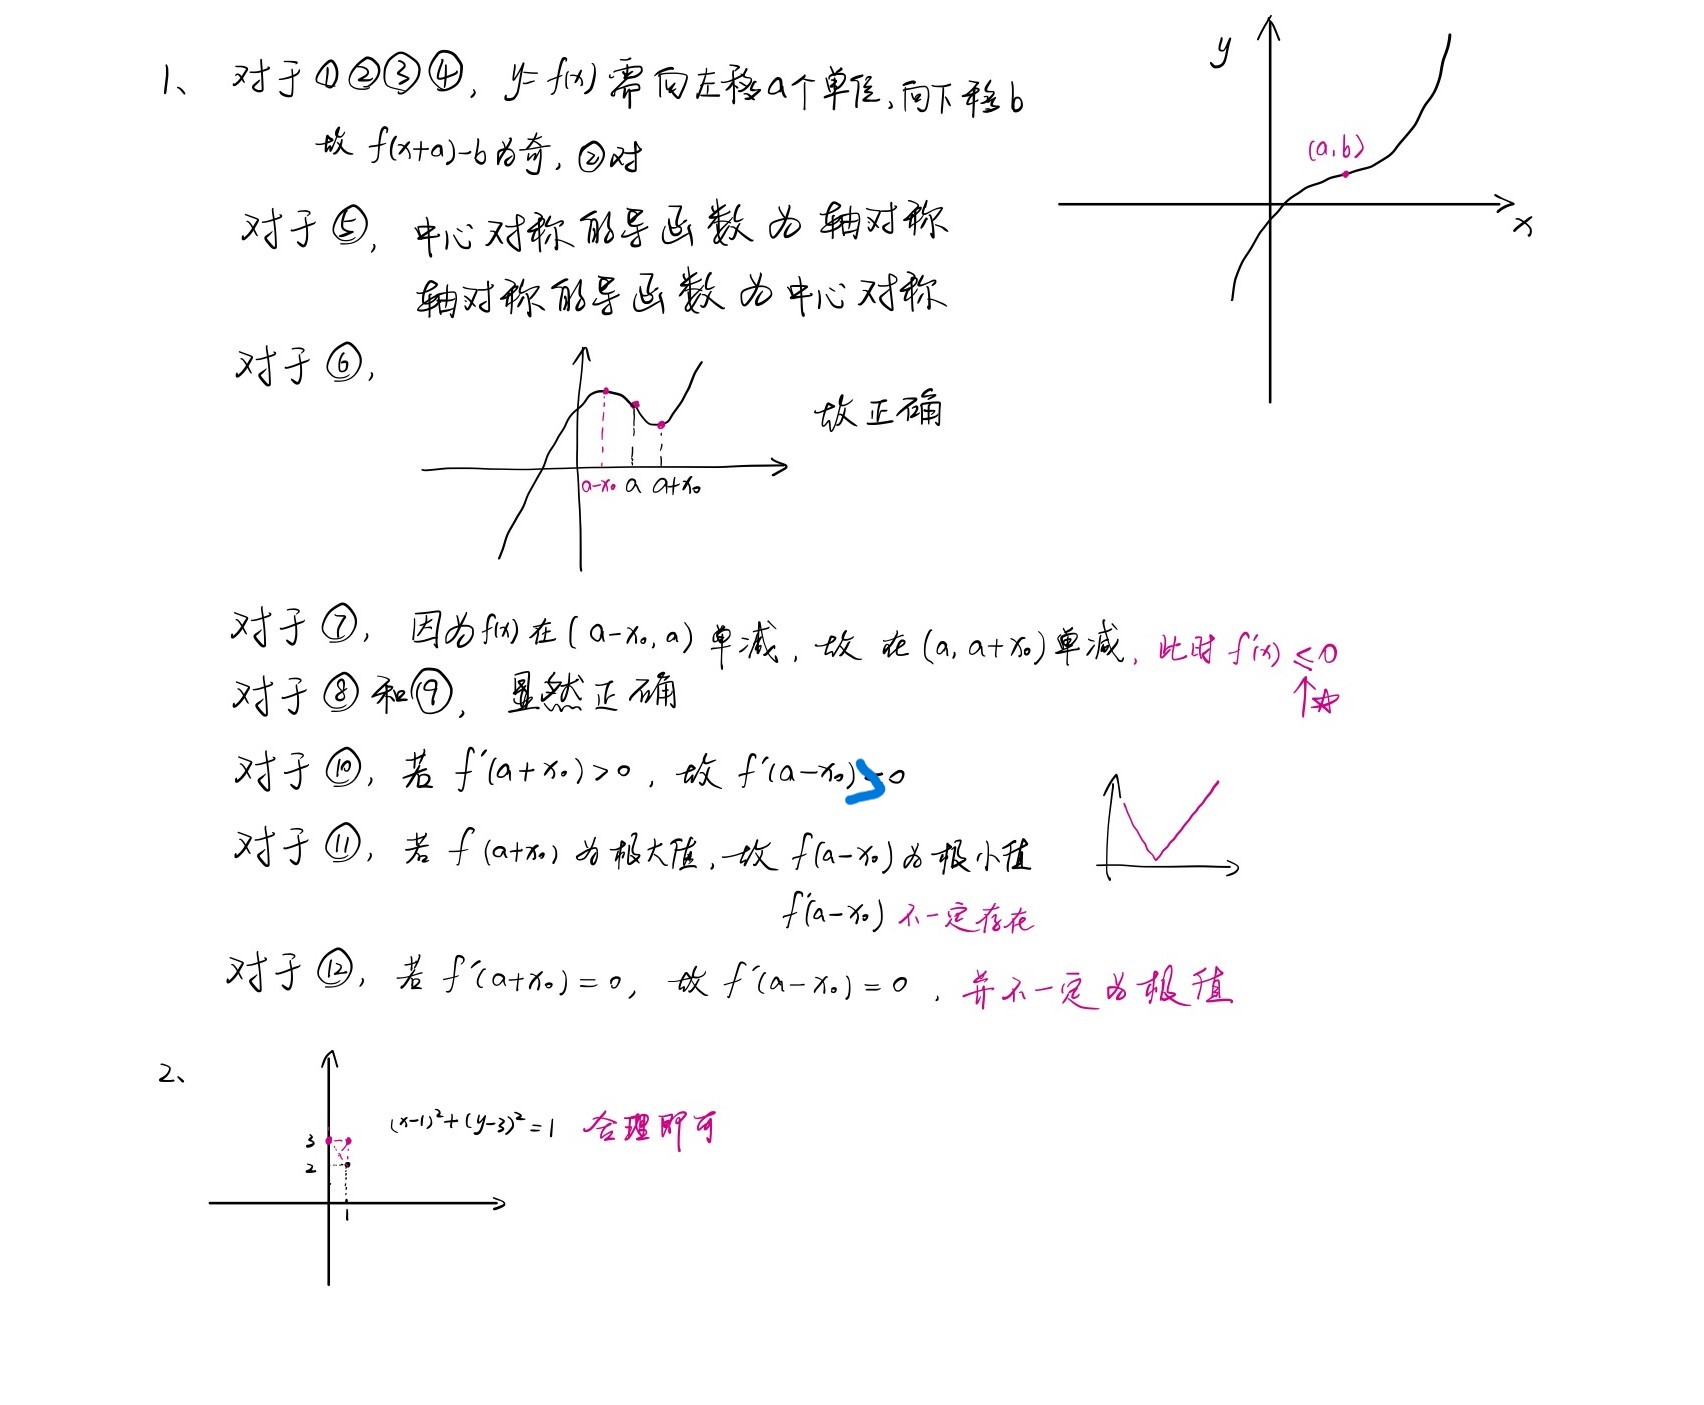 1、对于①②③④, y=f(x)需向左移a个单位,向下移b
故 f(x+a)-b为奇, ②对
y
(a,b)
x
对于⑤, 中心对称的导函数为轴对称
轴对称的导函数为中心对称
对于⑥,
a-x₀ a a+x₀
故正确
对于⑦, 因为f(x)在(a-x₀,a)单减, 故在(a,a+x₀)单减, 此时f'(x)≤0
↑☆
对于⑧和⑨, 显然正确
对于⑩, 若f'(a+x₀)>0, 故f'(a-x₀)>0
对于⑪, 若f(a+x₀)为极大值, 故f(a-x₀)为极小值
f'(a-x₀)不一定存在
对于⑫, 若f'(a+x₀)=0, 故f'(a-x₀)=0, 并不一定为极值
2、
(x-1)²+(y-3)²=1 合理即可
3
2
1